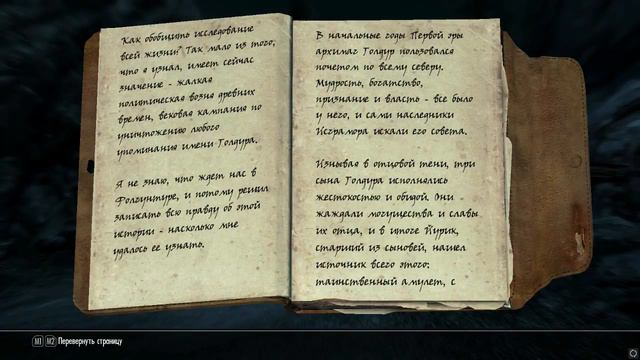 Как обобщить исследование
всей жизни? Так мало из того,
что я узнал, имеет сейчас
значение - жалкая
политическая возня древних
времен, вековая кампания по
уничтожению любого
упоминания имени Голдура.
Я не знаю, что ждет нас в
Фолгунтуре, и потому решил
записать всю правду об этой
истории - насколько мне
удалось ее узнать.
В начальные годы Первой эры
архимаг Голдур пользовался
почетом по всему северу.
Мудрость, богатство,
признание и власть - все было
у него, и сами наследники
Исграмора искали его совета.
Изнывая в отцовой тени, три
сына Голдура исполнялись
жестокостью и обидой. Они
жаждали могущества и славы
их отца, и в итоге Йурик,
старший из сыновей, нашел
источник всего этого:
таинственный амулет, с
M1 M2 Перевернуть страницу